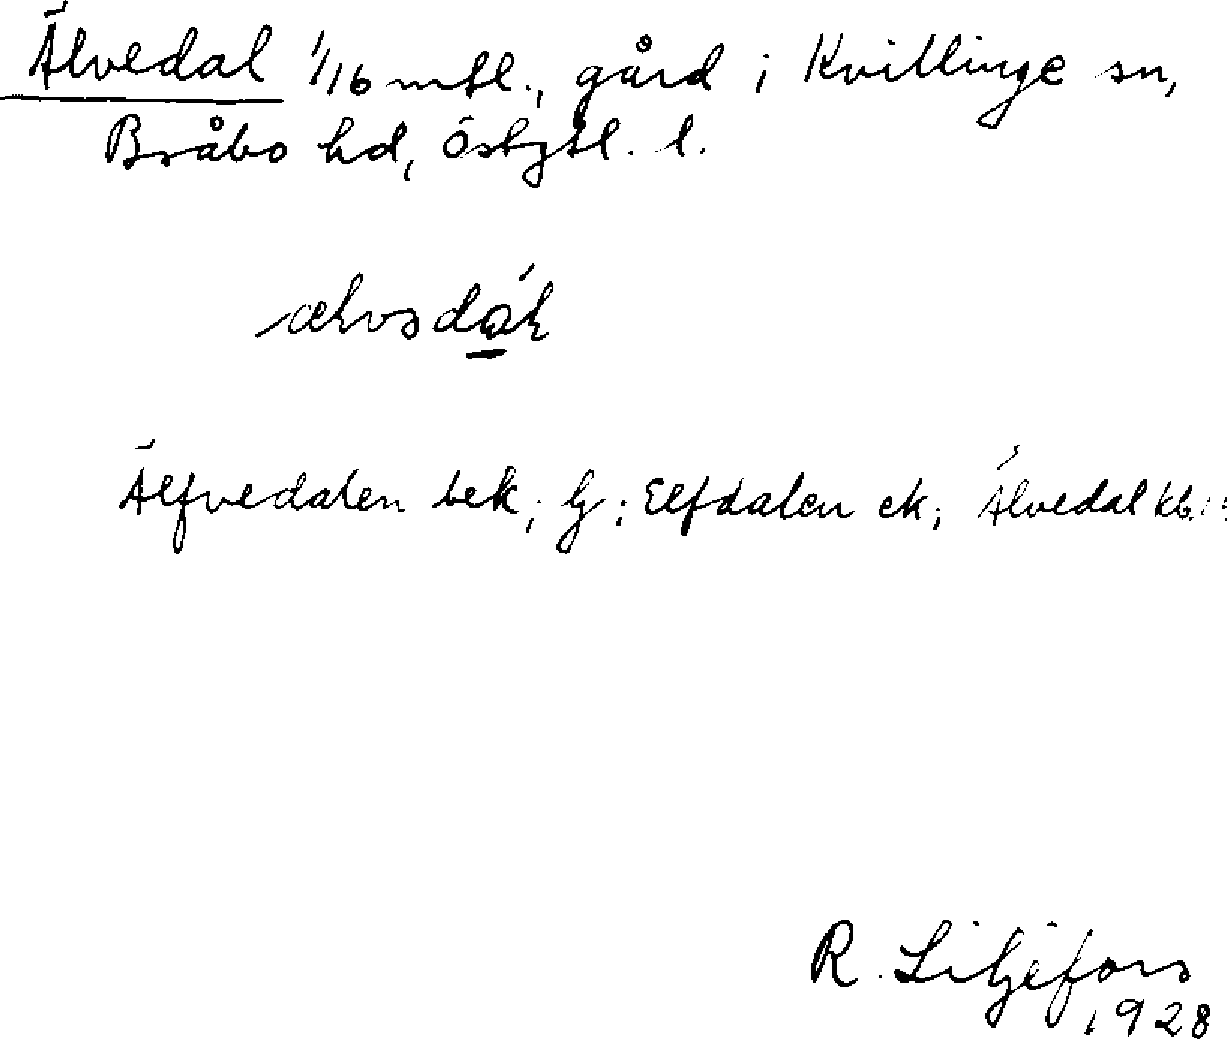 Älvedal 1/16 mtl., gård i Kvillinge sn,
Bråbo hd, Östgtl. l.
Älfvedalen bek; G: Elfdalen ek; Älvedal kb.
R. Liljefors
1928